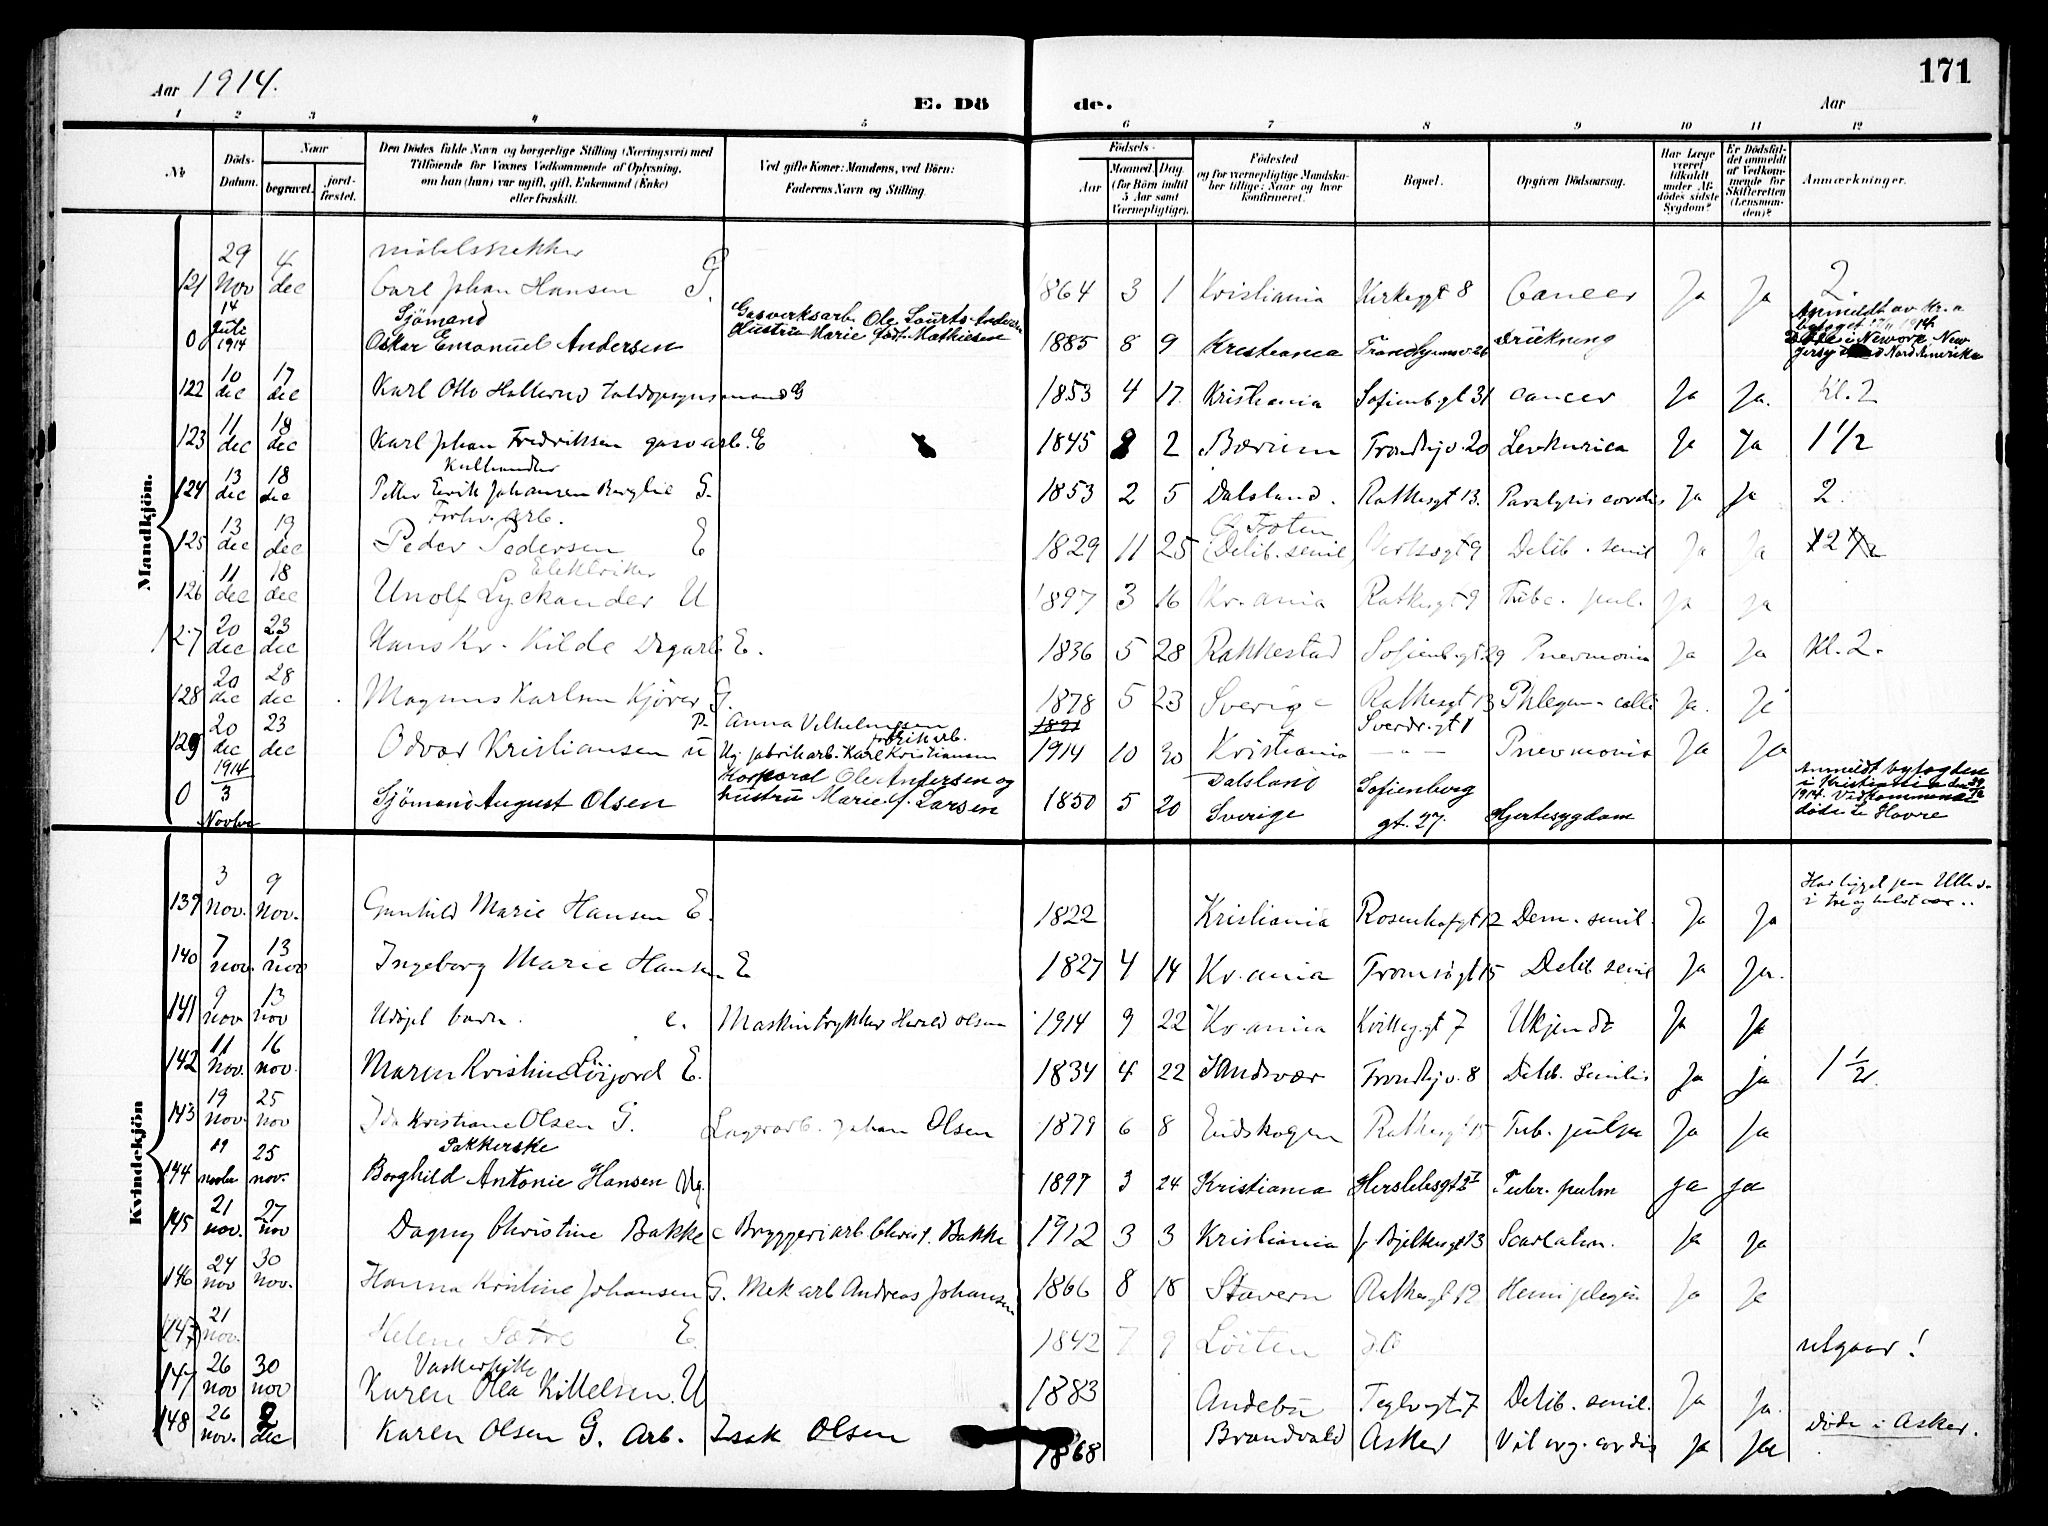 171
Aar 1914.
E. Döde.
Aar
1 2 3 4 5 6 7 8 9 10 11 12
No
Döds-Datum.
Naar
begravet.
jord-fæstet.
Den Dödes fulde Navn og borgerlige Stilling (Næringsvei) med
Tilföiende for Voxnes Vedkommende af Oplysning,
om han (hun) var ugift, gift, Enkemand (Enke)
eller fraskilt.
Ved gifte Koner: Mandens, ved Börn:
Faderens Navn og Stilling.
Födsels-
Aar
Maaned. Dag.
(for Börn indtil
5 Aar samt
Værnepligtige).
Födested
og for værnepligtige Mandska-
ber tillige: Naar og hvor
konfirmeret.
Bopæl.
Opgiven Dödsaarsag.
Har Læge
været
tilkaldt
under Af-
dödes sidste
Sygdom?
Er Dödsfal-
det anmeldt
af Vedkom-
mende for
Skifteretten
(Lensman-
den)?
Anmærkninger.
Mandkjön.
121 29 Nov 4 dec möbelsnekker Carl Johan Hansen G. 1864 3 1 Kristiania Kirkegt 8 Cancer Ja Ja 2.
0 14 Juli 1914 Sjömand Oskar Emanuel Andersen Gasverksarb. Ole Lauritz Andersen Hustru Marie födt Mathiesen 1885 8 9 Kristiania Trondhjemsv. 26 Drukning Anmeldt av Kr.a byfoget 1914 New Jersy Nord Amerika
122 10 dec 17 dec Karl Otto Hallerud Toldopsynsmand G 1853 4 17. Kristiania Sofienb.gt 31 cancer Ja Ja. Kl. 2
123 11 dec 18 dec Karl Johan Fredriksen gasvarb. E 1845 8 2 Bærum Trondhjv. 20 Ja Ja 1 1/2
124 13 dec 18 dec Kulhandler Petter Eerik Johansen Berglie G. 1853 2 5 Dalsland. Rathkesgt 13. Paralysis cordis Ja Ja 2.
125 13 dec 19 dec Forhv. Arb. Peder Pedersen E 1829 11 25 Ö. Toten (Debil. senil) Debil. senil Ja Ja 2
126 11 dec 18 dec Elektriker Unolf Lyckander U 1897 3 16 Kr.ania Rathkesgt 9 Tubc. pul. Ja Ja
127 20 dec 23 dec Hans Kr. Kilde Dagarb E. 1836 5 28 Rakkestad Sofienb.gt. 29 Pnevmonia Ja Ja Kl. 2.
128 20 dec 28 dec Magnus Karlsen Kjörer G. 1878 5 23 Sverige Rathkesgt 13 Phlegm. colli Ja. Ja
129 20 dec 23 dec Odvar Kristiansen u P. Anna Vilhelmsen fabrikarb. Ug fabrikarb. Karl Kristiansen 1891 1914 10 30 Kristiania Sverdr.gt 1 — " — Pnevmonia Ja Ja
0 1914 3 Novbr Sjömand August Olsen Korporal Ole Andersen og hustru Marie f. Larsen 1850 5 20 Dalsland Sverige Sofienberg gt. 27. Hjertesygdom Anmeldt byfogden i Kristiania 1914. Vedkommende döde i Le Havre
Kvindekjön
139 3 Nov. 9 Nov. Gunhild Marie Hansen E. 1822 Kristiania Rosenhofgt 12 Dem. senil. Ja Ja Har ligget paa
140 7 nov. 13 nov Ingeborg Marie Hansen E 1827 4 14 Kr.ania Tromsögt 15 Debil senil Ja Ja.
141 9 nov 13 nov Udöpt barn. e. Maskintrykker Harald Olsen 1914 9 22 Kr.ania Kvitteg.gt 7 Ukjendt Ja Ja
142 11 Nov. 16 nov. Maren Kristine E. 1834 4 22 Sandsvær Trondhjv. 8 Debil. Senilis Ja ja 1 1/2.
143 19 nov. 25 nov Ida Kristiane Olsen G. Lagerarb. Johan Olsen 1879 6 8 Eidskogen Rathkesgt 15 Tub. pulm Ja Ja
144 19 novbr 25 nov. Pakkerske Borghild Antonie Hansen Ug. 1897 3 24 Kristiania Herslebsgt 27 Tuber. pulm ja ja
145 21 nov. 27 nov Dagny Christine Bakke e Bryggeriarb. Christ. Bakke 1912 3 3 Kristiania Bjelkesgt 13 Scarlatin. Ja Ja
146 24 nov 30 nov. Hanna Kristine Johansen G. Mek arb Andreas Johansen 1866 8 18 Stavern Rathkesgt 12 Hemiplegia Ja Ja
(147) 21 nov. Helene Sætre E. 1842 7 9 Löiten utgaar!
147 26 nov 30 nov Vaskerpike Karen Olea Kittelsen. U 1883 Andebu Teglv.gt 7 Debil. senil. Ja Ja.
148 26 nov. 2 dec Karen Olsen G. Arb. Isak Olsen 1868 Brandvald Asker Vit org. cordis Ja Ja Döde i Asker.